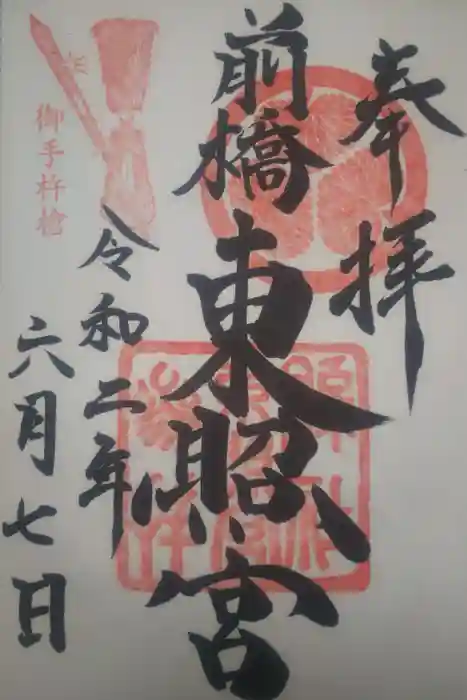 奉拝
前橋
東照宮
令和二年
六月七日
御手杵槍